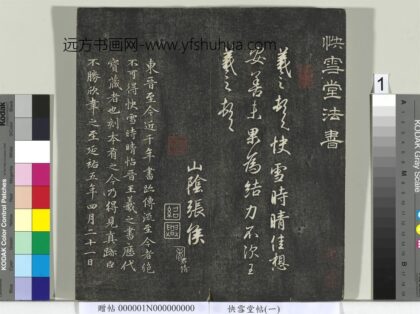 远方书画网-www.yfshuhua.com
快雪堂法書
羲之頓首快雪時晴佳想
安善未果為結力不次王
羲之頓首
山陰張侯
東晉至今近千年書跡傳流至今者絶
不可得快雪時晴帖晉王羲之書歷代
寶藏者也刻本有之今乃得見真跡臣
不勝欣幸之至延祐五年四月二十一日
1
Kodak
KODAK Color Control Patches
Kodak Gray Scale
贈帖 000001N000000000 快雪堂帖(一)